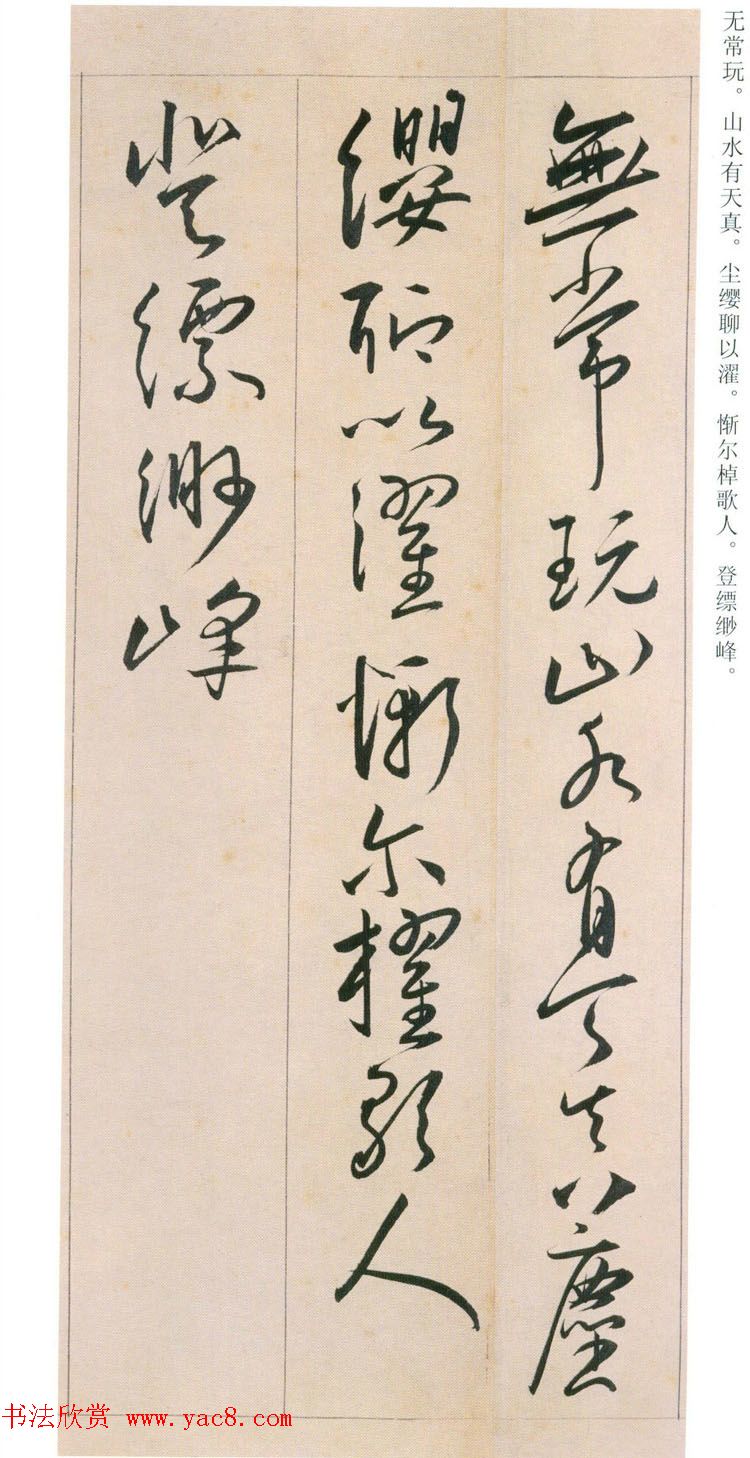 无常玩。山水有天真。尘缨聊以濯。惭尔棹歌人。登缥缈峰。
無常玩山水有天真塵
纓聊以濯慚尔櫂歌人
登縹緲峰
书法欣赏 www.yac8.com